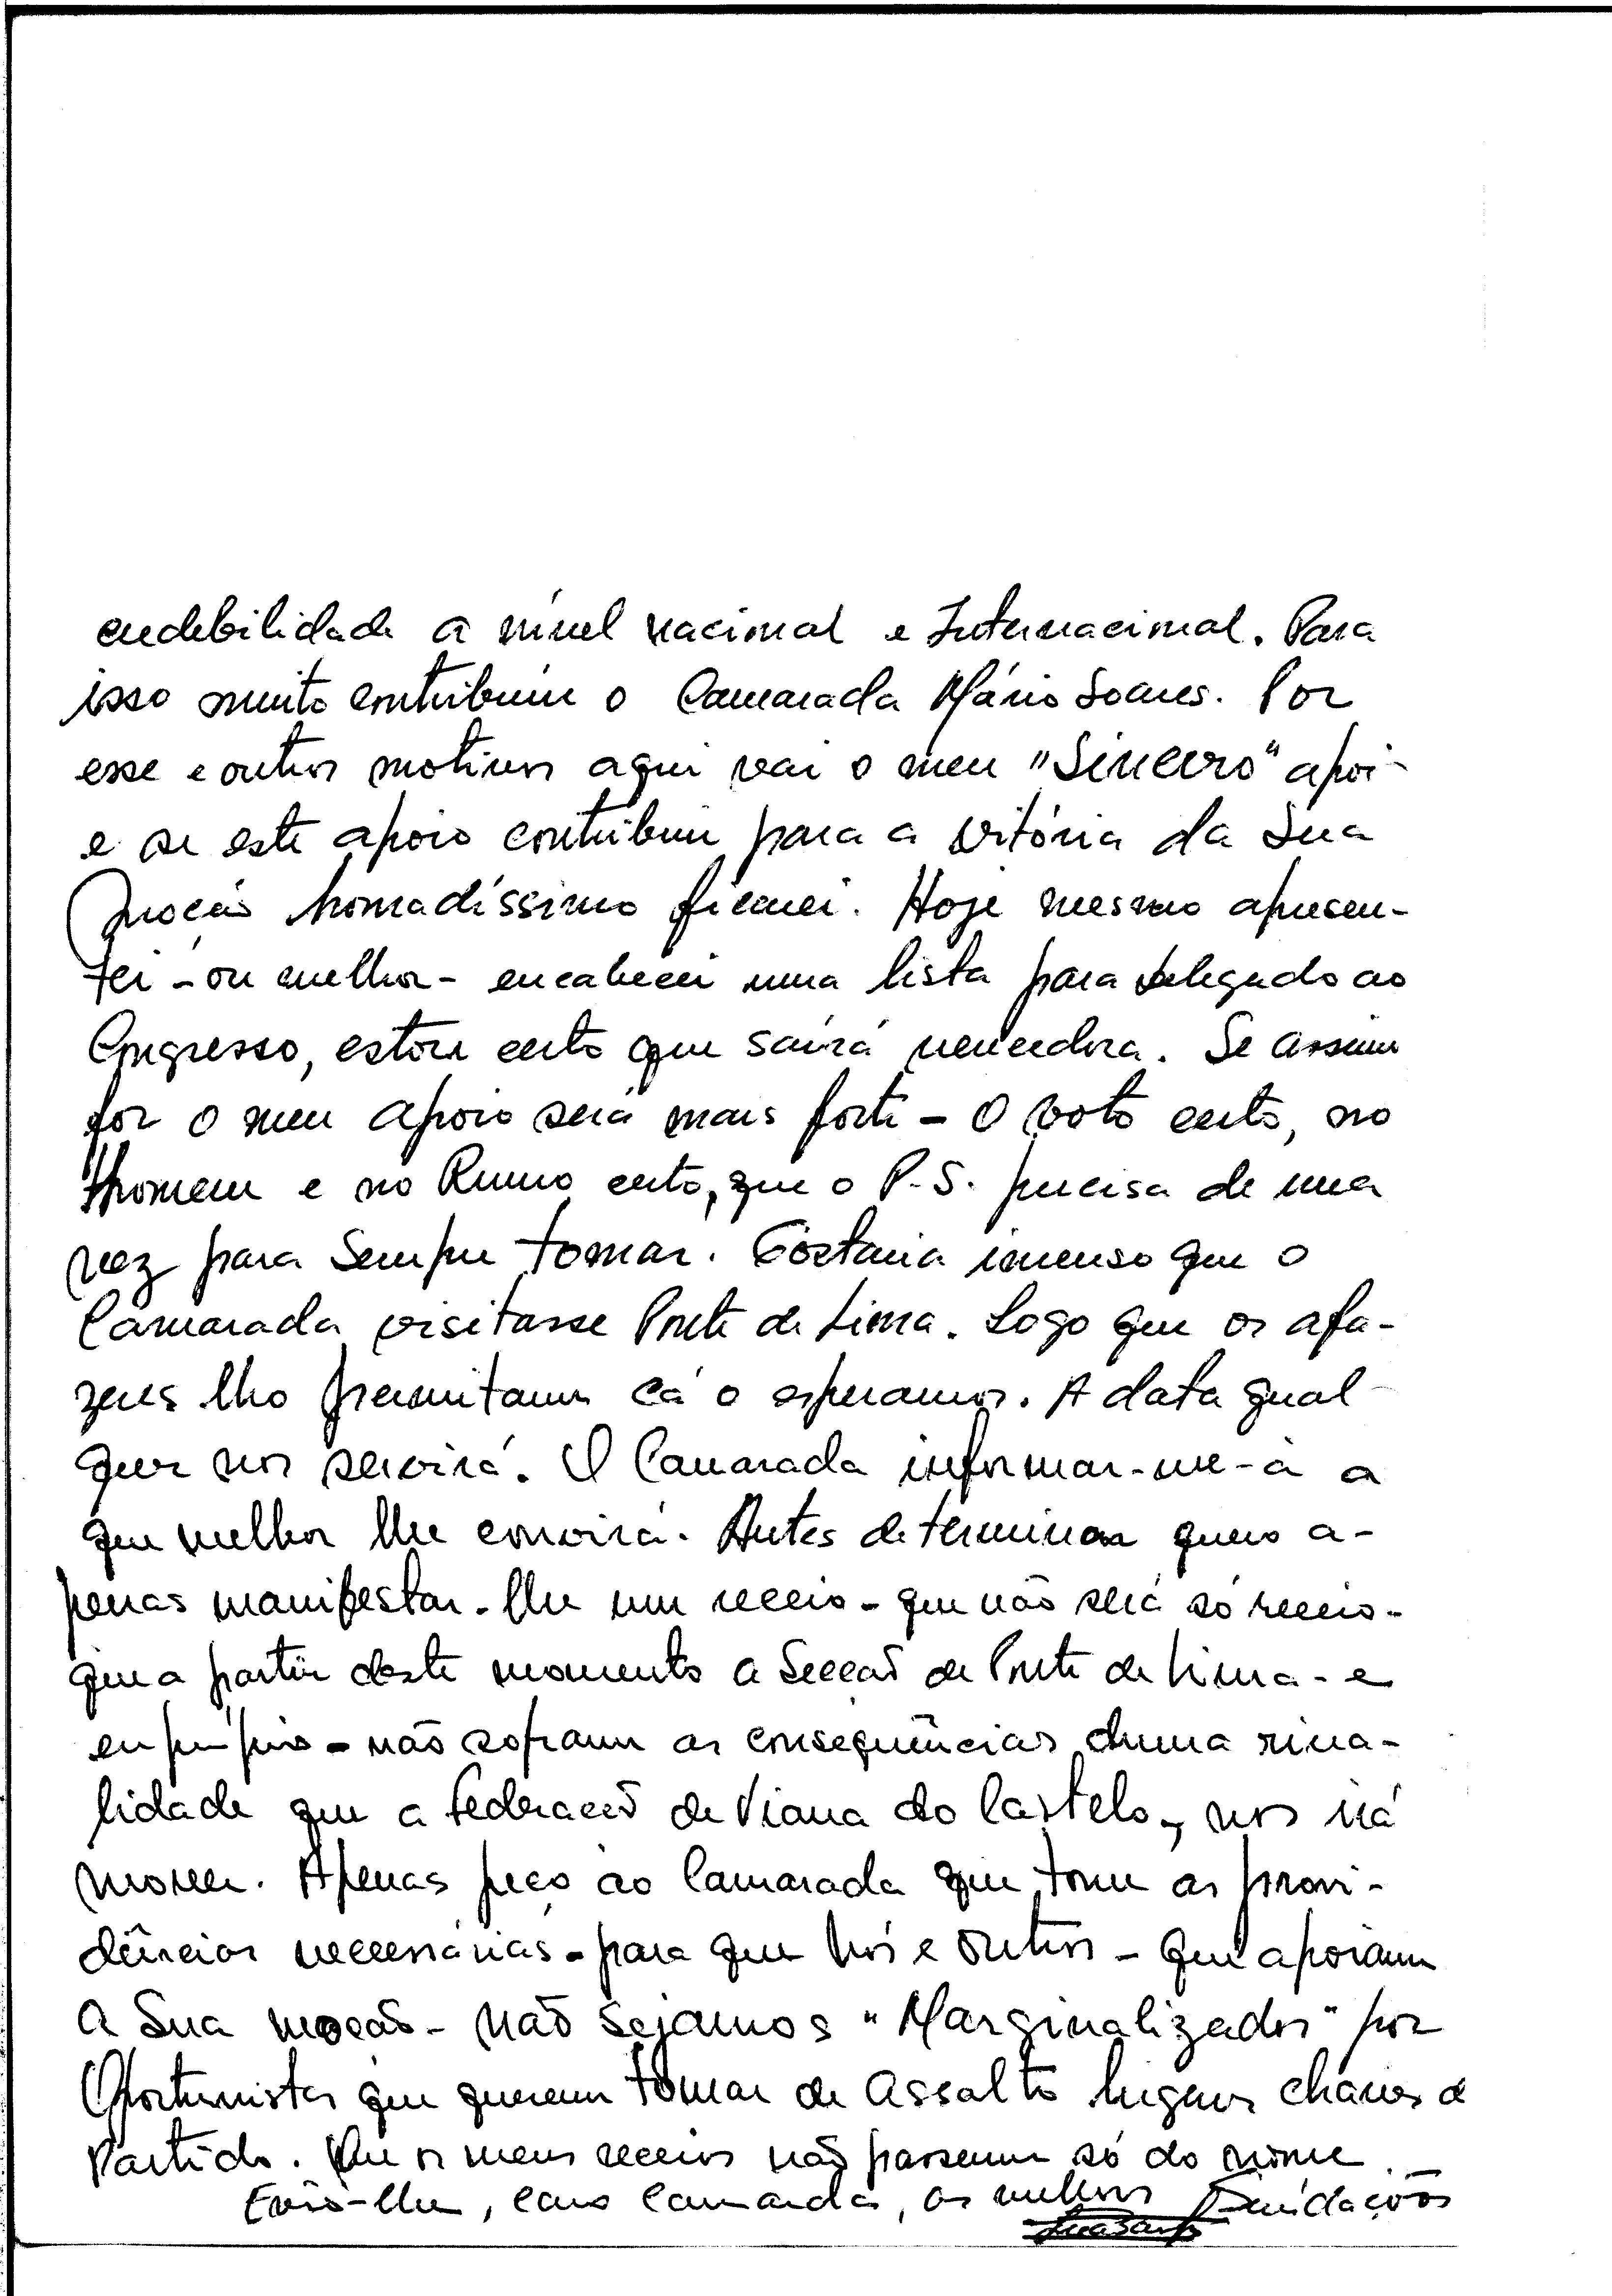 credebilidade a nível nacional e Internacional. Para
isso muito contribuiu o Camarada Mário Soares. Por
esse e outros motivos aqui vai o meu "Sincero" apoi-
e se este apoio contribuir para a vitória da Sua
Moção honradíssimo ficarei. Hoje mesmo apresen-
tei - ou melhor - encabecei uma lista para delegado ao
Congresso, estou certo que sairá vencedora. Se assim
for o meu apoio será mais forte - O voto certo, no
Homem e no Rumo certo, que o P.S. precisa de uma
vez para Sempre tomar. Gostaria imenso que o
Camarada visitasse Ponte de Lima. Logo que os afa-
zeres lho permitam cá o esperamos. A data qual-
quer nos servirá. O Camarada informar-me-á a
que melhor lhe convirá. Antes de terminar quero a-
penas manifestar-lhe um receio - que não será só receio -
que a partir deste momento a Secção de Ponte de Lima - e
eu próprio - não sofram as consequências duma riva-
lidade que a Federação de Viana do Castelo, nos irá
mover. Apenas peço ao Camarada que tome as provi-
dências necessárias - para que nós e outros - que apoiam
a Sua moção - não sejamos "Marginalizados" por
Oportunistas que querem tomar de Assalto lugares chaves d
Partido. Que os meus receios não passem só do nome.
Envio-lhe, caro Camarada, as melhores Saudações